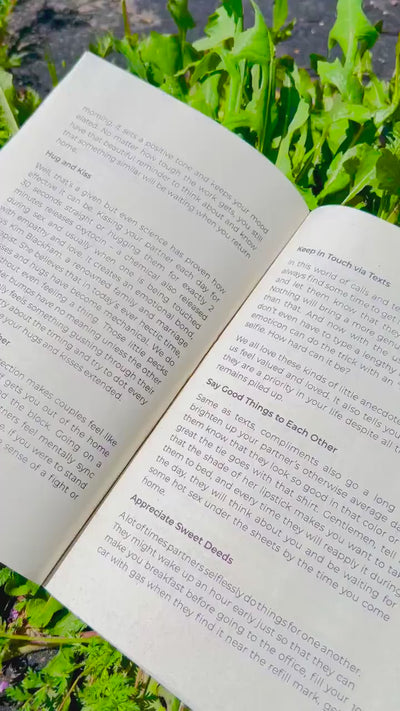 morning, it sets a positive tone and keeps your mood
elated. No matter how tough the work gets, you still
have that beautiful reminder to think about and know
that something similar will be waiting when you return
home.
Hug and Kiss
Well, that's a given but even science has proven how
effective it can be. Kissing your partner each day for
30 seconds straight or hugging them for exactly 2
minutes releases oxytocin, a chemical also released
during sex, and usually when one is being
with empathy and love. It creates an emotional bond.
Kim Blackham, a renowned family and marriage
She believes that in today's ever hectic time,
and hugs have become mechanical. We do
but event feeling a thing. Those little pecks
bumps have no meaning unless the other
feels something pulsing through their
about the timing and try to dot every
your hugs and kisses extended.
her
ection makes couples feel like
gets you out of the home
nd the block. Going on a
tners feel mentally sync
if you were to stand
e sense of a fight or
Keep in Touch via Texts
In this world of calls and
always find some time to get
and let them know that they
Nothing will bring a more gen
man that. And now with the
don't even have to type a lengthy
emoticon can do the trick with an
selfie. How hard can it be?
We all love these kinds of little anecdotes
us feel valued and loved. It also tells you
they are a priority in your life despite all th
remains piled up.
Say Good Things to Each Other
Same as texts, compliments also go a long
brighten up your partner's otherwise average da
them know that they look so good in that color or
great the tie goes with that shirt. Gentlemen, tell
that the shade of her lipstick makes you want to tak
them to bed, and every time they will reapply it during
the day, they will think about you and be waiting for
some hot sex under the sheets by the time you come
home.
Appreciate Sweet Deeds
A lot of times partners selflessly do things for one another.
They might wake up an hour early just so that they can
make you breakfast before going to the office, fill your
car with gas when they find it near the refill mark,